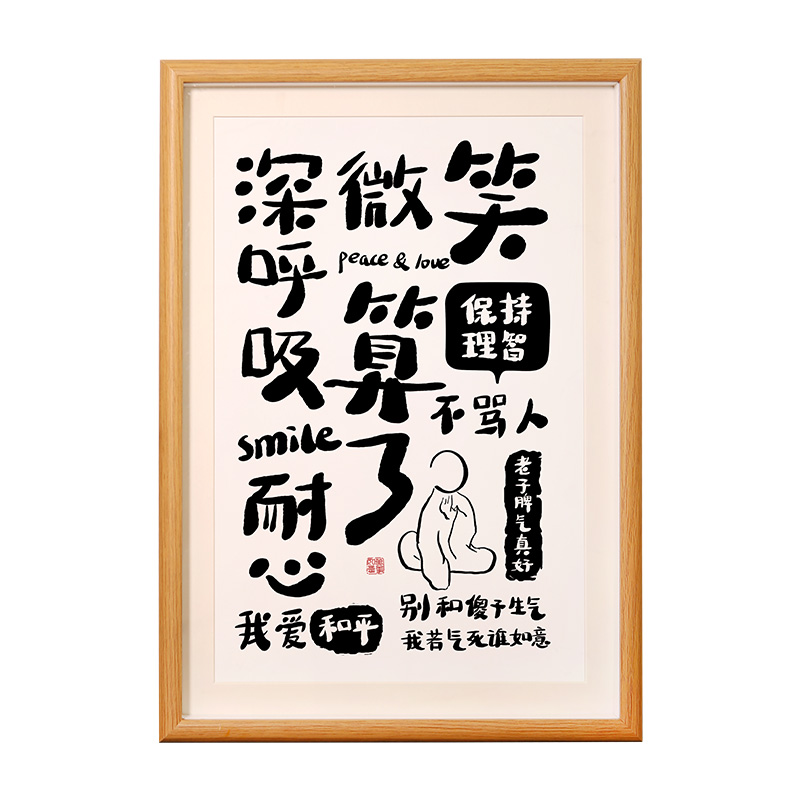 深呼吸
smile
耐心
我爱和平
微笑
peace & love
算了
保持
理智
不骂人
老子脾气真好
别和傻子生气
我若气死谁如意